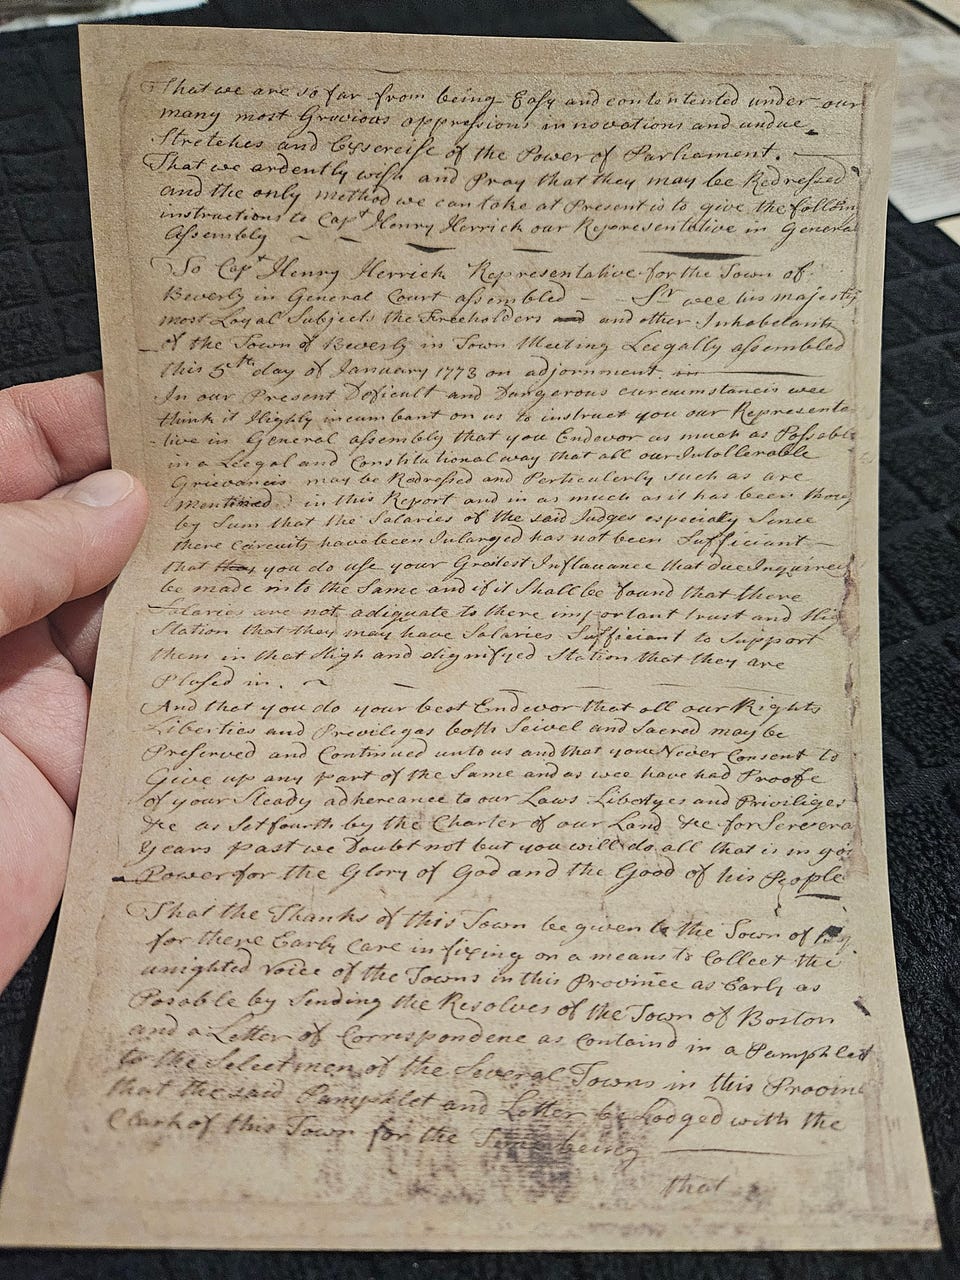 That we are so far from being Easy and contentented under our
many most Grivious oppressions innovations and undue
Stretches and Exsercise of the Power of Parliament.
That we ardently wish and Pray that they may be Redressed
and the only method we can take at Present is to give the follin
instructions to Capt Henry Herrick our Representative in General
Assembly
To Capt Henry Herrick Representative for the Town of
Beverly in General Court assembled — Sr wee his majesty
most Loyal Subjects the Freeholders and and other Inhabetants
of the Town of Beverly in Town Meeting Leegally assembled
this 5th day of January 1773 on adjornment in
In our Present Deficult and Dangerous curcumstancis wee
think it Highly incumbant on us to instruct you our Representa
-tive in General assembly that you Endevor as much as Possabl
in a Leegal and Constitutional way that all our Intollerable
Grievancis may be Redressed and Perticularly such as are
mentined in this Report and in as much as it has been thou
by Sum that the Salaries of the said Judges especially Sence
there Circuits have been Inlarged has not been Sufficiant
that they you do use your Gratest Influance that due Inquirey
be made into the Same and if it Shall be found that there
Salaries are not adiguate to there important trust and Hig
Station that they may have Salaries Sufficiant to Support
them in that High and dignifyed Station that they are
Plased in.
And that you do your best Endevor that all our Rights
Liberties and Previligas both Seivel and Sacred may be
Preserved and Continued unto us and that you Never Consent to
Give up any part of the Same and as wee have had Proofe
of your Steady adhereance to our Laws Libertyes and Priviliges
&c as Set fourth by the Charter of our Land &c for Severa
Years past we Doubt not but you will do all that is in yo
Power for the Glory of God and the Good of his People
That the Thanks of this Town be given to the Town of
for there Early Care in fixing on a means to Collect the
unighted Voice of the Towns in this Province as Early as
Posable by Sending the Resolves of the Town of Boston
and a Letter of Correspondene as Containd in a Pamphlet
to the Selectmen of the Several Towns in this Provine
that the said Pamphlet and Letter be Lodged with the
Clark of this Town for the Time being
that